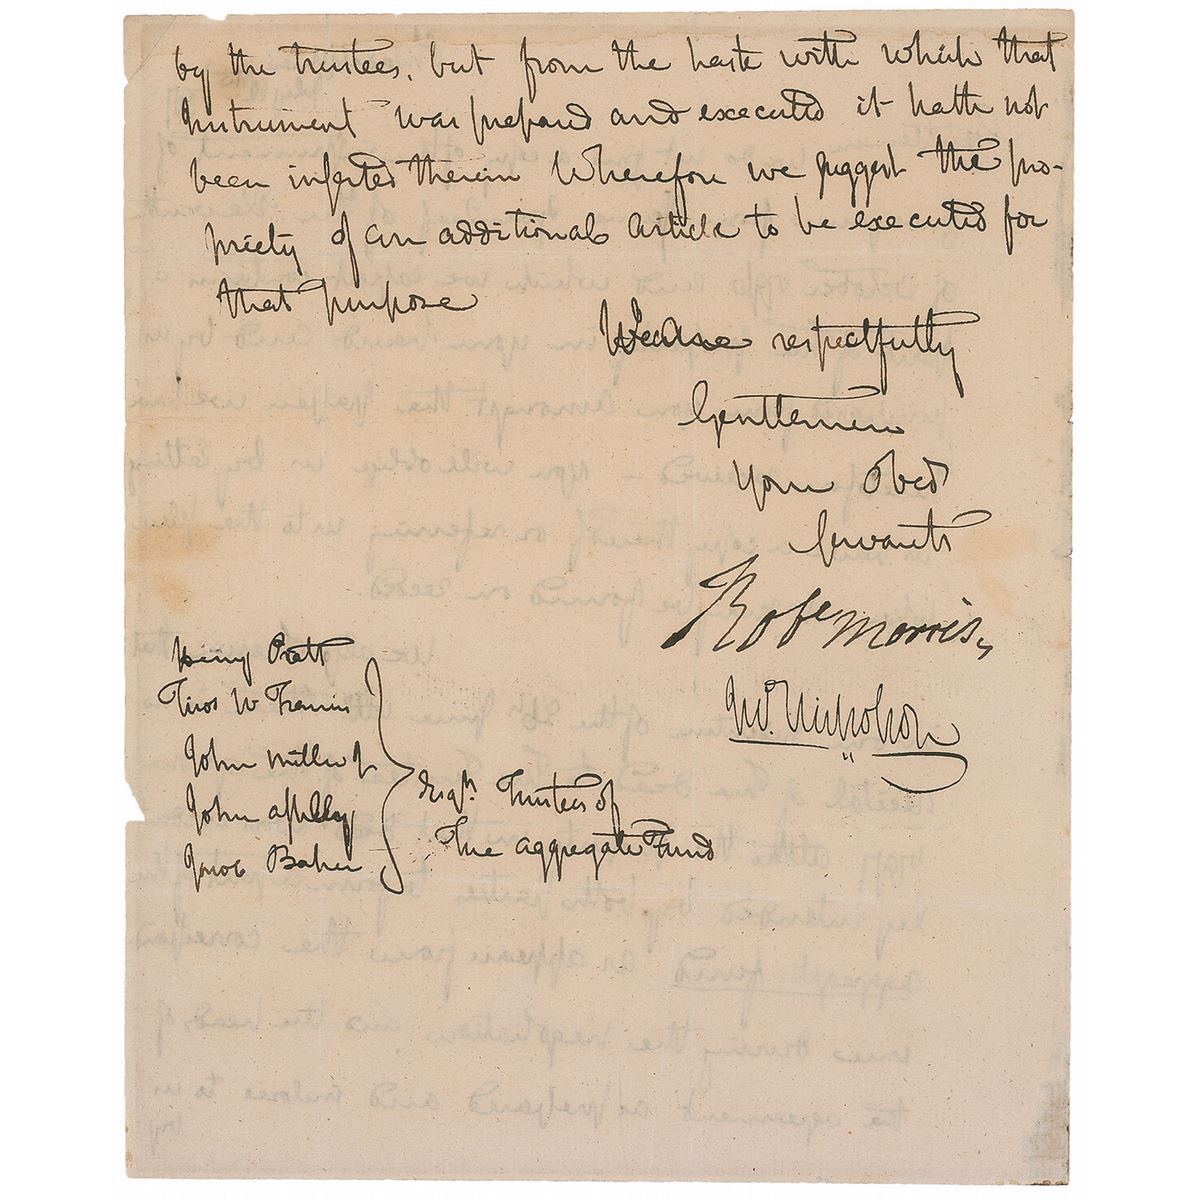 by the trustees, but from the haste with which that
Instrument was prepared and executed it hath not
been inserted therein Wherefore we suggest the pro-
priety of an additional article to be executed for
that purpose
We are respectfully
Gentlemen
Your Obed
Servants
Robt Morris,
Jno. Nicholson
Henry Pratt
Thos W Francis
John Miller Jr
John Ashley
Jacob Baker
Esqrs. Trustees of
The aggregate Fund